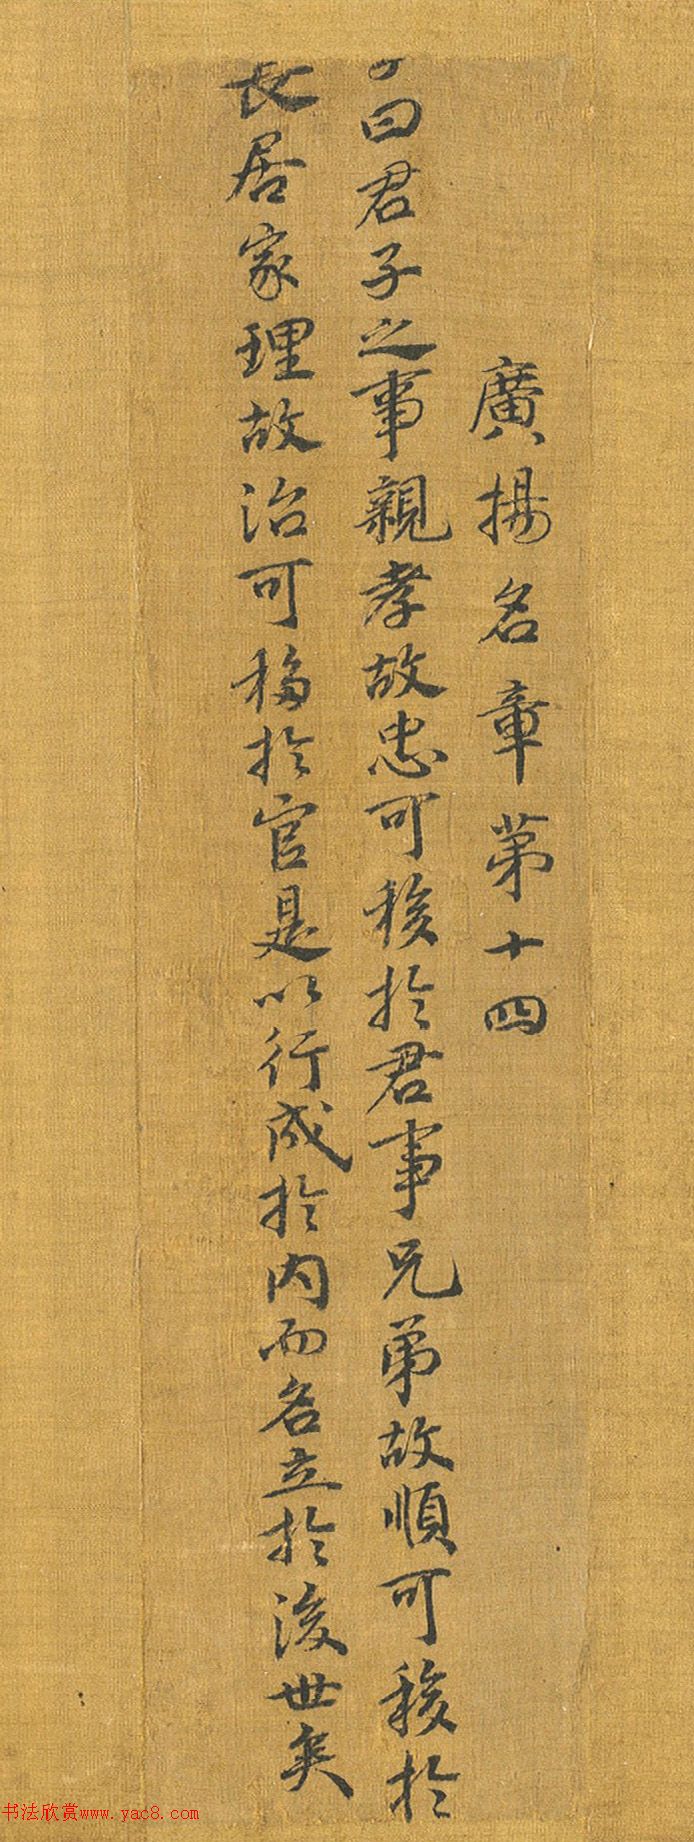 廣揚名章第十四
子曰君子之事親孝故忠可移於君事兄弟故順可移於
長居家理故治可移於官是以行成於内而名立於後世矣
书法欣赏www.yac8.com